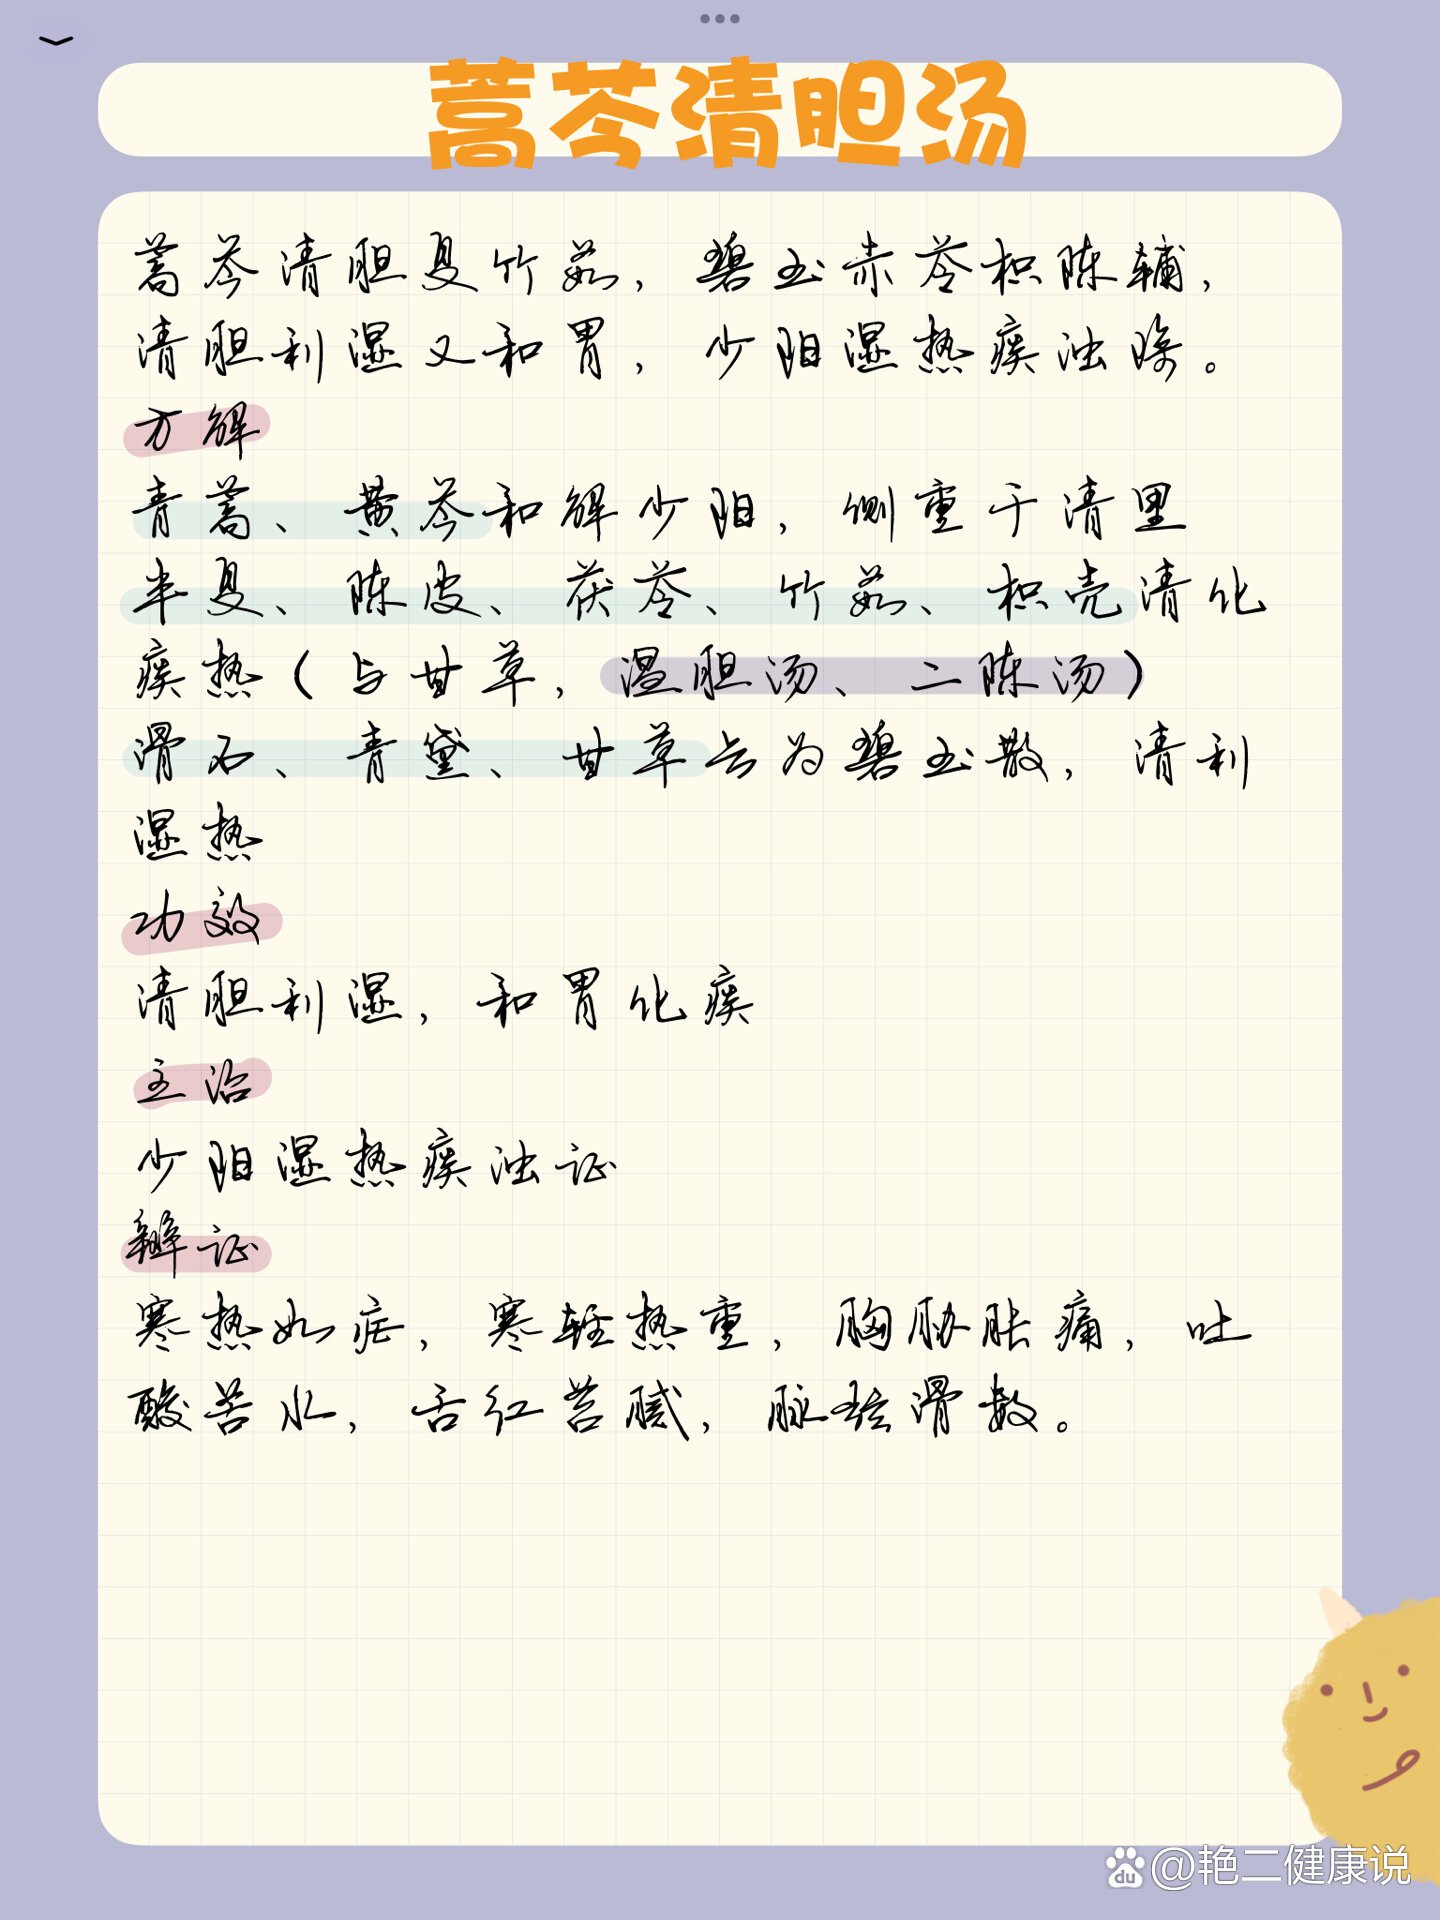 蒿芩清胆汤
蒿芩清胆夏竹茹，碧玉赤苓枳陈辅，
清胆利湿又和胃，少阳湿热痰浊除。
方解
青蒿、黄芩和解少阳，侧重于清里
半夏、陈皮、茯苓、竹茹、枳壳清化
痰热（与甘草，温胆汤、二陈汤）
滑石、青黛、甘草云为碧玉散，清利
湿热
功效
清胆利湿，和胃化痰
主治
少阳湿热痰浊证
辨证
寒热如疟，寒轻热重，胸胁胀痛，吐
酸苦水，舌红苔腻，脉弦滑数。
du @艳二健康说